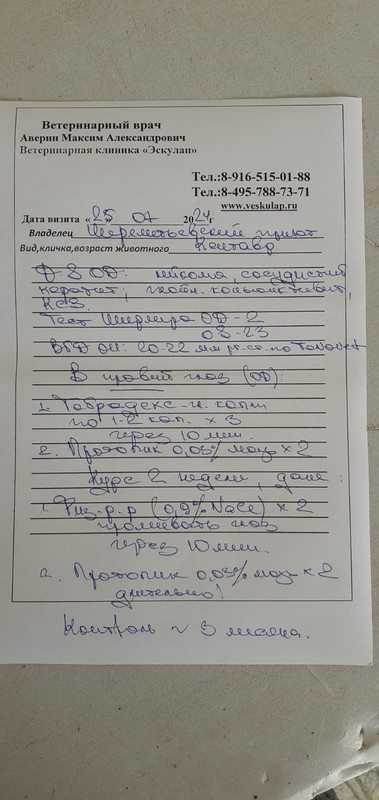 Ветеринарный врач
Аверин Максим Александрович
Ветеринарная клиника «Эскулап»
Тел.:8-916-515-01-88
Тел.:8-495-788-73-71
www.veskulap.ru
Дата визита «25» 07 2024г
Владелец Шереметьевский приют
Вид,кличка,возраст животного Кентавр
OD: сосудистый
кератит, конъюнктивит,
ксз.
Тест Ширмера OD - 2
OS - 23
ВГД OU: 20-22 мм рт. ст. по TonoVet
В правый глаз (OD):
1. Тобрадекс - гл. капли
по 1-2 кап. х 3
через 10 мин.
2. Протопик 0,03% мазь х 2
Курс 2 недели, далее:
1. Физ. р-р (0,9% NaCl) х 2
промывать глаз
через 10 мин.
2. Протопик 0,03% мазь х 2
длительно!
Контроль ~ 3 месяца.